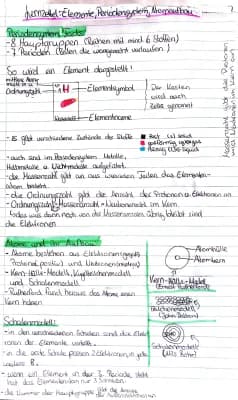 Lernzettel: Elemente, Periodensystem, Atomaufbau
Periodensystem
- 8 Hauptgruppen (Reihen mit mind. 6 Stoffen)
- 7 Perioden (Zeilen die waagerecht verlaufen)
So wird ein Element dargestellt:
Ordnungszahl
H
Elementsymbol
Elementname
Der Kasten
wird auch
Zelle genannt
- Es gibt verschiedene Zustände der Stoffe
- auch sind im Periodensystem Metalle,
Halbmetalle & Nichtmetalle aufgeführt.
- die Massenzahl gibt an aus wie vielen Teilen das Element
- die Ordnungszahl gibt die Anzahl der Protonen & Elektronen an
- Ordnungszahl - Massenzahl = Neutronenzahl im Kern
↳ das was dann noch von der Massenzahl übrig bleibt sind
die Elektronen
Atome und ihr Aufbau
- Atome bestehen aus Elektronen (negativ)
Protonen (positiv) und Neutronen (neutral)
- Kern-Hülle-Modell, Kugelteilchenmodell
und Schalenmodell
- Rutherford fand heraus das Atome einen
Kern haben
Atomhülle
Atomkern
Kern-Hülle-Modell
(Ernest Rutherford)
Teilchenmodell
(John Dalton)
Schalenmodell
(Niels Bohr)
Schalenmodell:
- in den verschiedenen Schalen sind die Elekt-
ronen der Elemente verteilt.
- in die erste Schale passen 2 Elektronen, in jede
weitere 8.
- wenn ein Element in der 3. Periode steht
hat das Element nur 3 Schalen
- die Nummer der Hauptgruppe gibt die Anzahl
der Außenelektronen